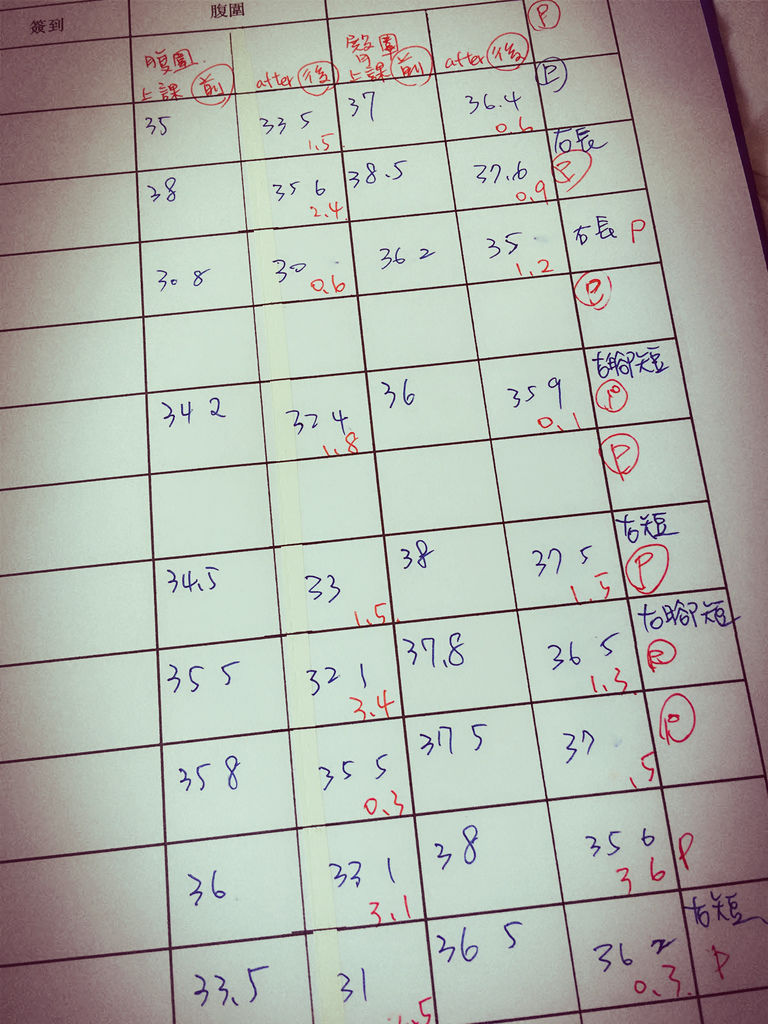 簽到 腹圍 P
腹圍 臀圍
上課前 after後 上課前 after後 P
35 33 5 37 36.4
1.5 0.6
右長
38 35 6 38.5 37.6 P
2.4 0.9
30 8 30 36 2 35 右長 P
0.6 1.2
P
右腳短
34 2 32 4 36 35 9 P
1.8 0.1
P
右短
34.5 33 38 37 5 P
1.5 1.5
右腳短
35 5 32 1 37.8 36 5 P
3.4 1.3
P
35 8 35 5 37 5 37
0.3 .5
36 33 1 38 35 6 P
3.1 3 6
右短
33.5 31 36 5 36 2 P
.5 0.3